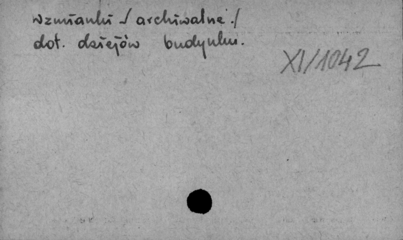 wzmianki / archiwalne /
dot. dziejów budynku.
XI/1042